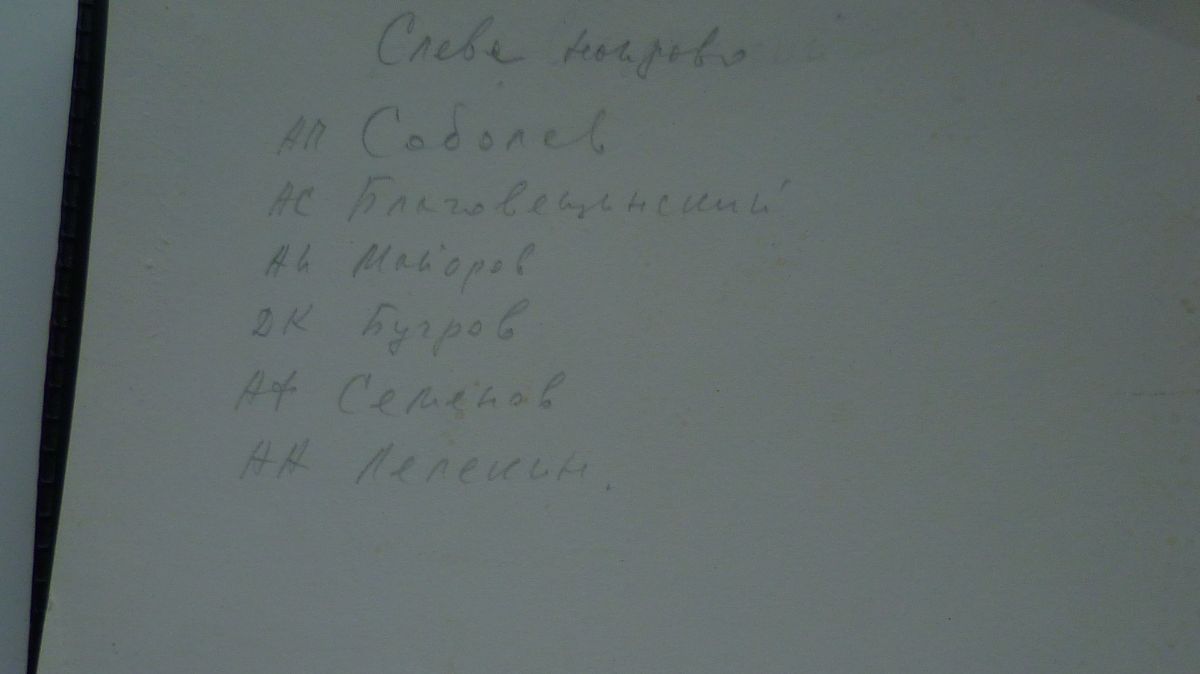 Слева направо
АП Соболев
АС Благовещинский
АИ Майоров
ДК Бугров
АФ Семенов
АА Лелекин.